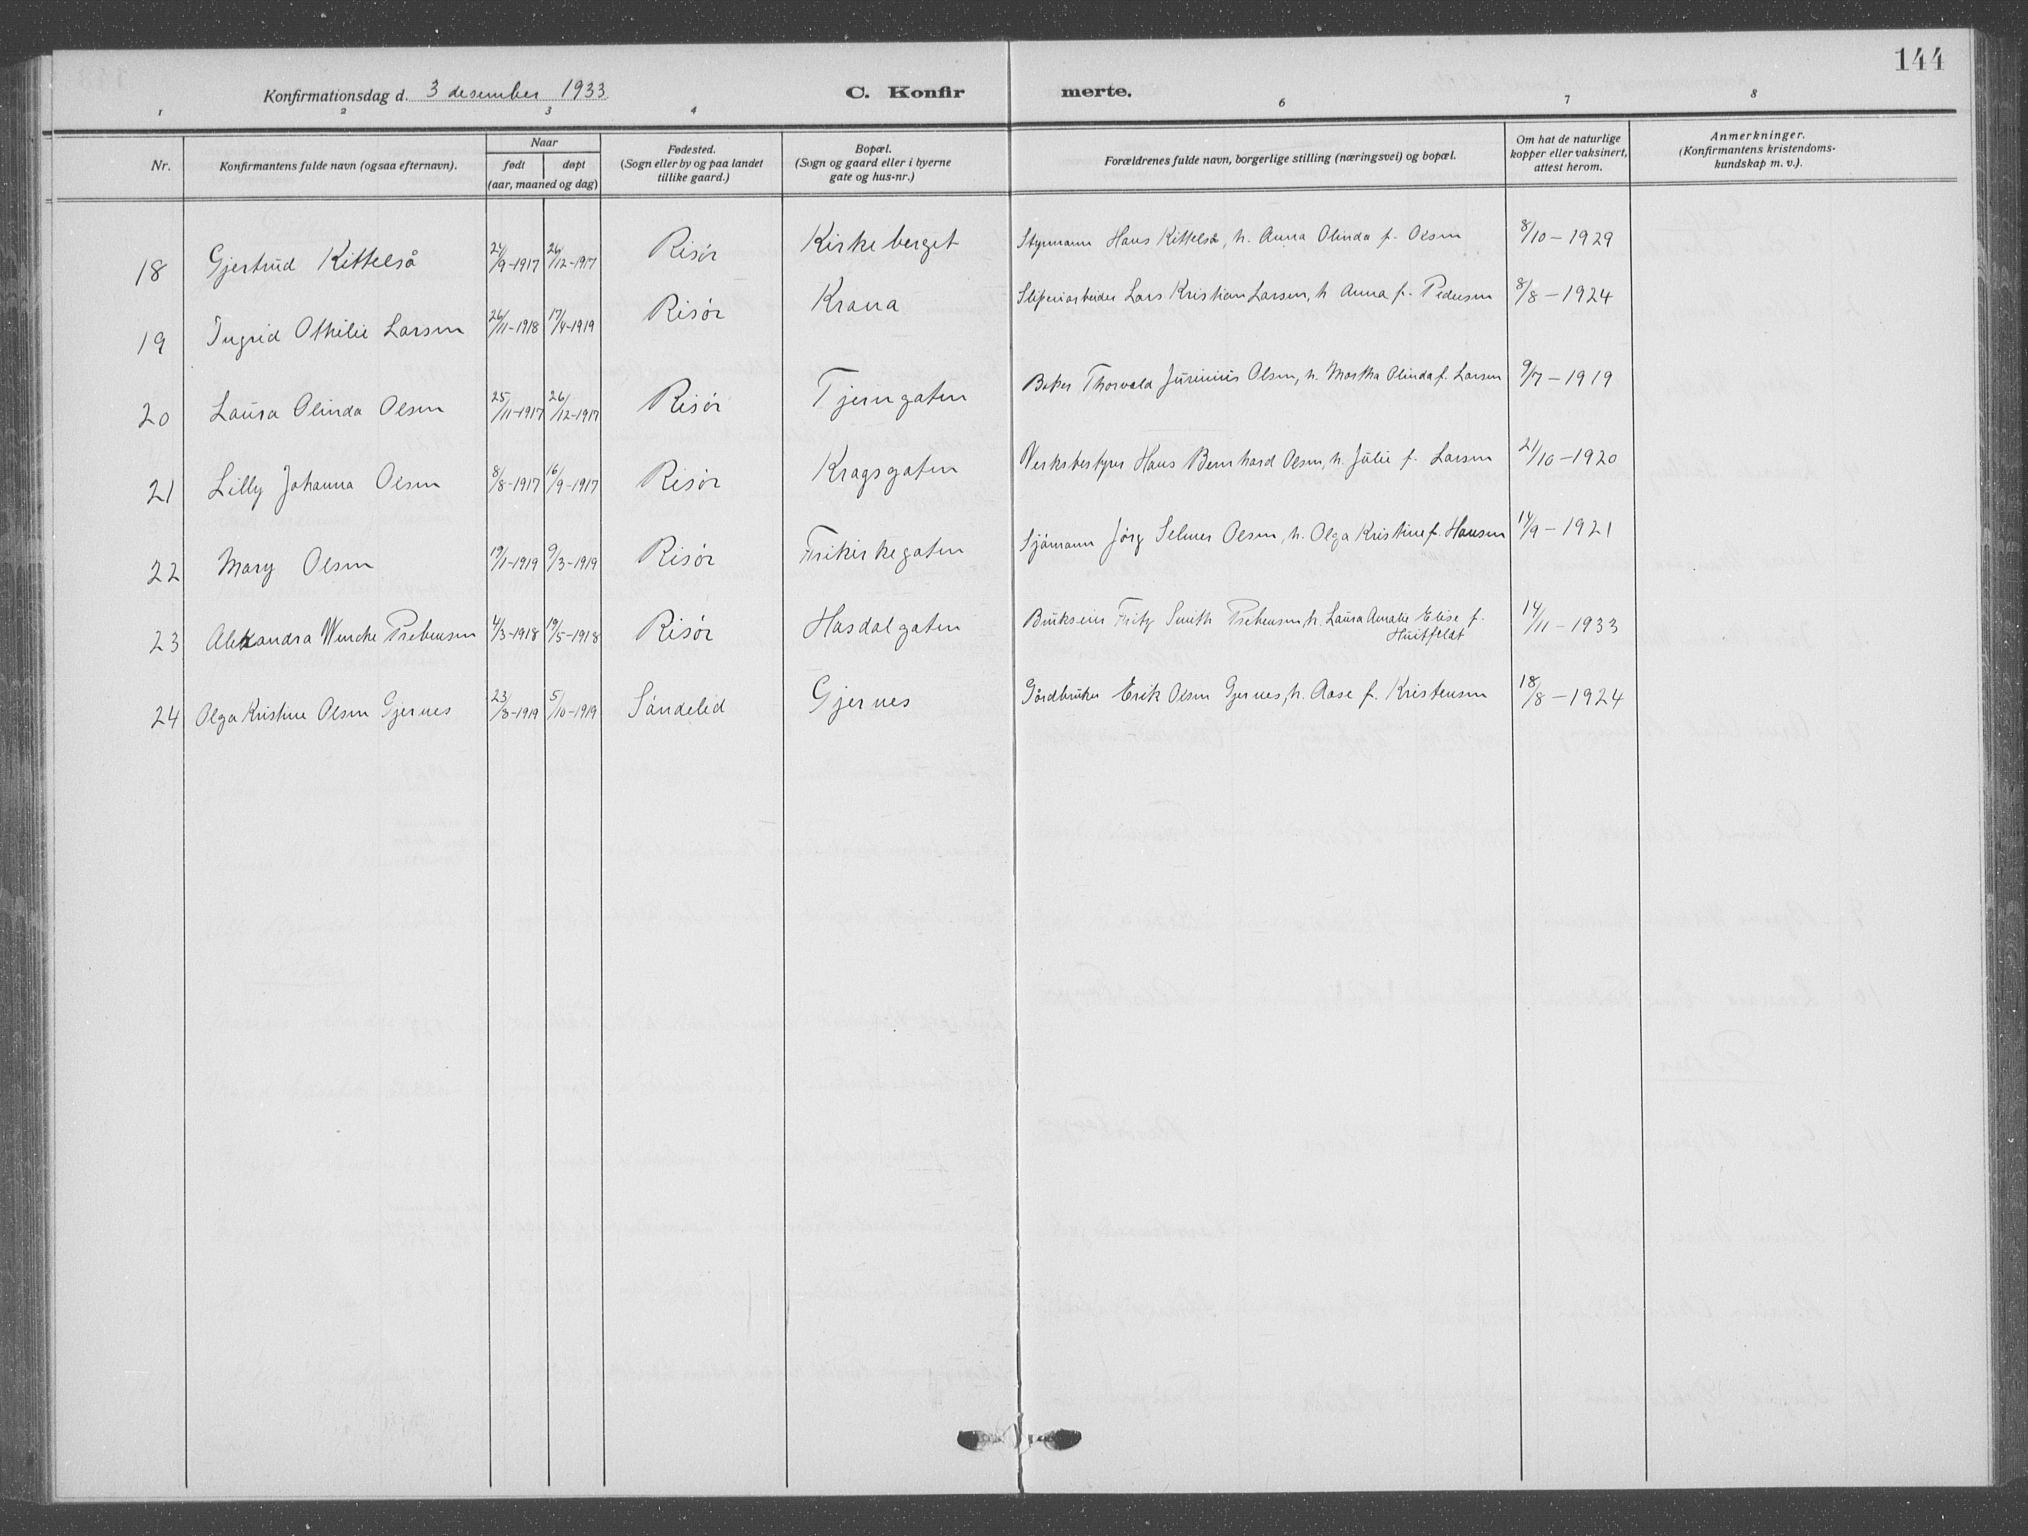 144
Konfirmationsdag d. 3 desember 1933 C. Konfirmerte.
1 2 3 4 6 7 8
Nr. Konfirmantens fulde navn (ogsaa efternavn). Naar født døpt (aar, maaned og dag) Fødested. (Sogn eller by og paa landet tillike gaard.) Bopæl. (Sogn og gaard eller i byerne gate og hus-nr.) Forældrenes fulde navn, borgerlige stilling (næringsvei) og bopæl. Om hat de naturlige kopper eller vaksinert, attest herom. Anmerkninger. (Konfirmantens kristendoms-kundskap m. v.).
18 Gjertrud Kittelså 24/9-1917 26/12-1917 Risør Kirkeberget Styrmann Hans Kittelså, h. Anna Olinda f. Olsen 8/10-1929
19 Ingrid Othilie Larsen 26/11-1918 17/4-1919 Risør Krana Sliperiarbeider Lars Kristian Larsen, h. Anna f. Pedersen 8/8-1924
20 Laura Olinda Olsen 25/11-1917 26/12-1917 Risør Tjerngaten Baker Thorvald Olsen, h. Martha Olinda f. Larsen 9/7-1919
21 Lilly Johanna Olsen 8/8-1917 16/9-1917 Risør Kragsgaten Verksbestyrer Hans Bernhard Olsen, h. Julie f. Larsen 21/10-1920
22 Mary Olsen 19/1-1919 9/3-1919 Risør Frikirkegaten Sjømann Jørg Selmer Olsen, h. Olga Kristine f. Hansen 14/9-1921
23 Alexandra Wenche Prebensen 4/3-1918 19/5-1918 Risør Hasdalgaten Brukseier Fritz Smith Prebensen h. Laura Amalie Elise f. Huitfeldt 14/11-1933
24 Olga Kristine Olsen Gjernes 23/8-1919 5/10-1919 Søndeled Gjernes Gårdbruker Erik Olsen Gjernes, h. Aase f. Kristensen 18/8-1924